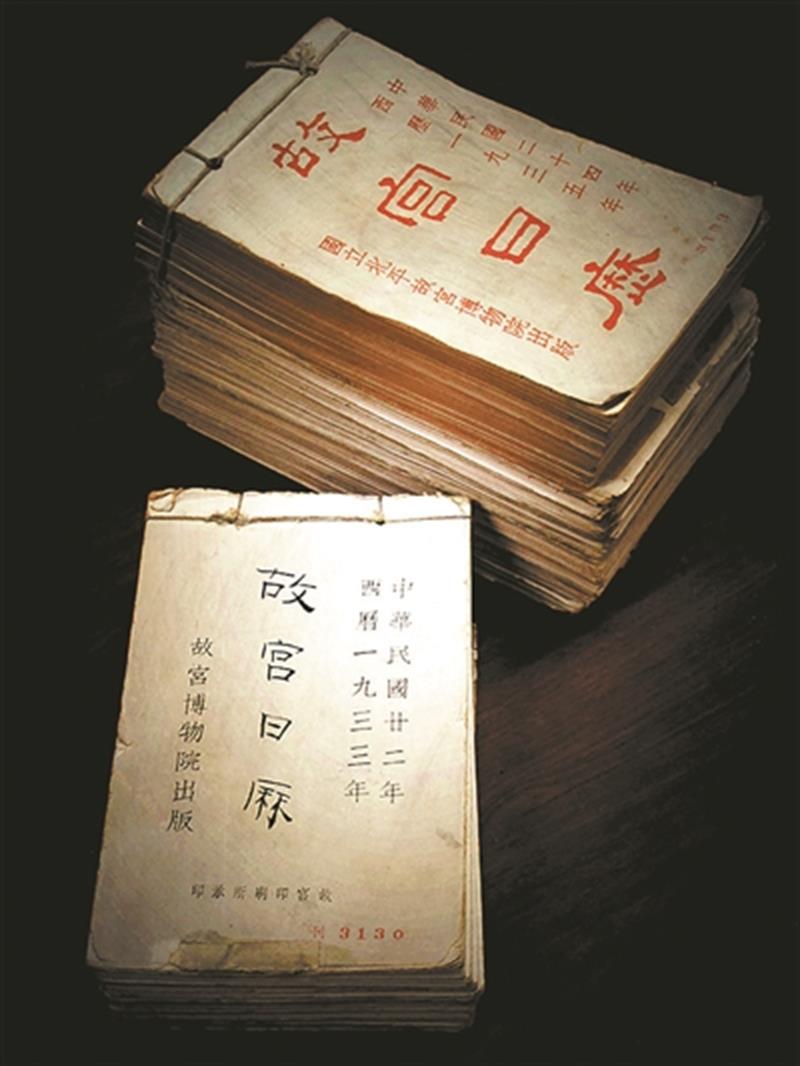 中華民國二十四年
西歷一九三五年
故宫日厤
國立北平故宮博物院出版
中華民國廿二年
西曆一九三三年
故宫日厤
故宮博物院出版
故宮印刷所承印
刊 3130